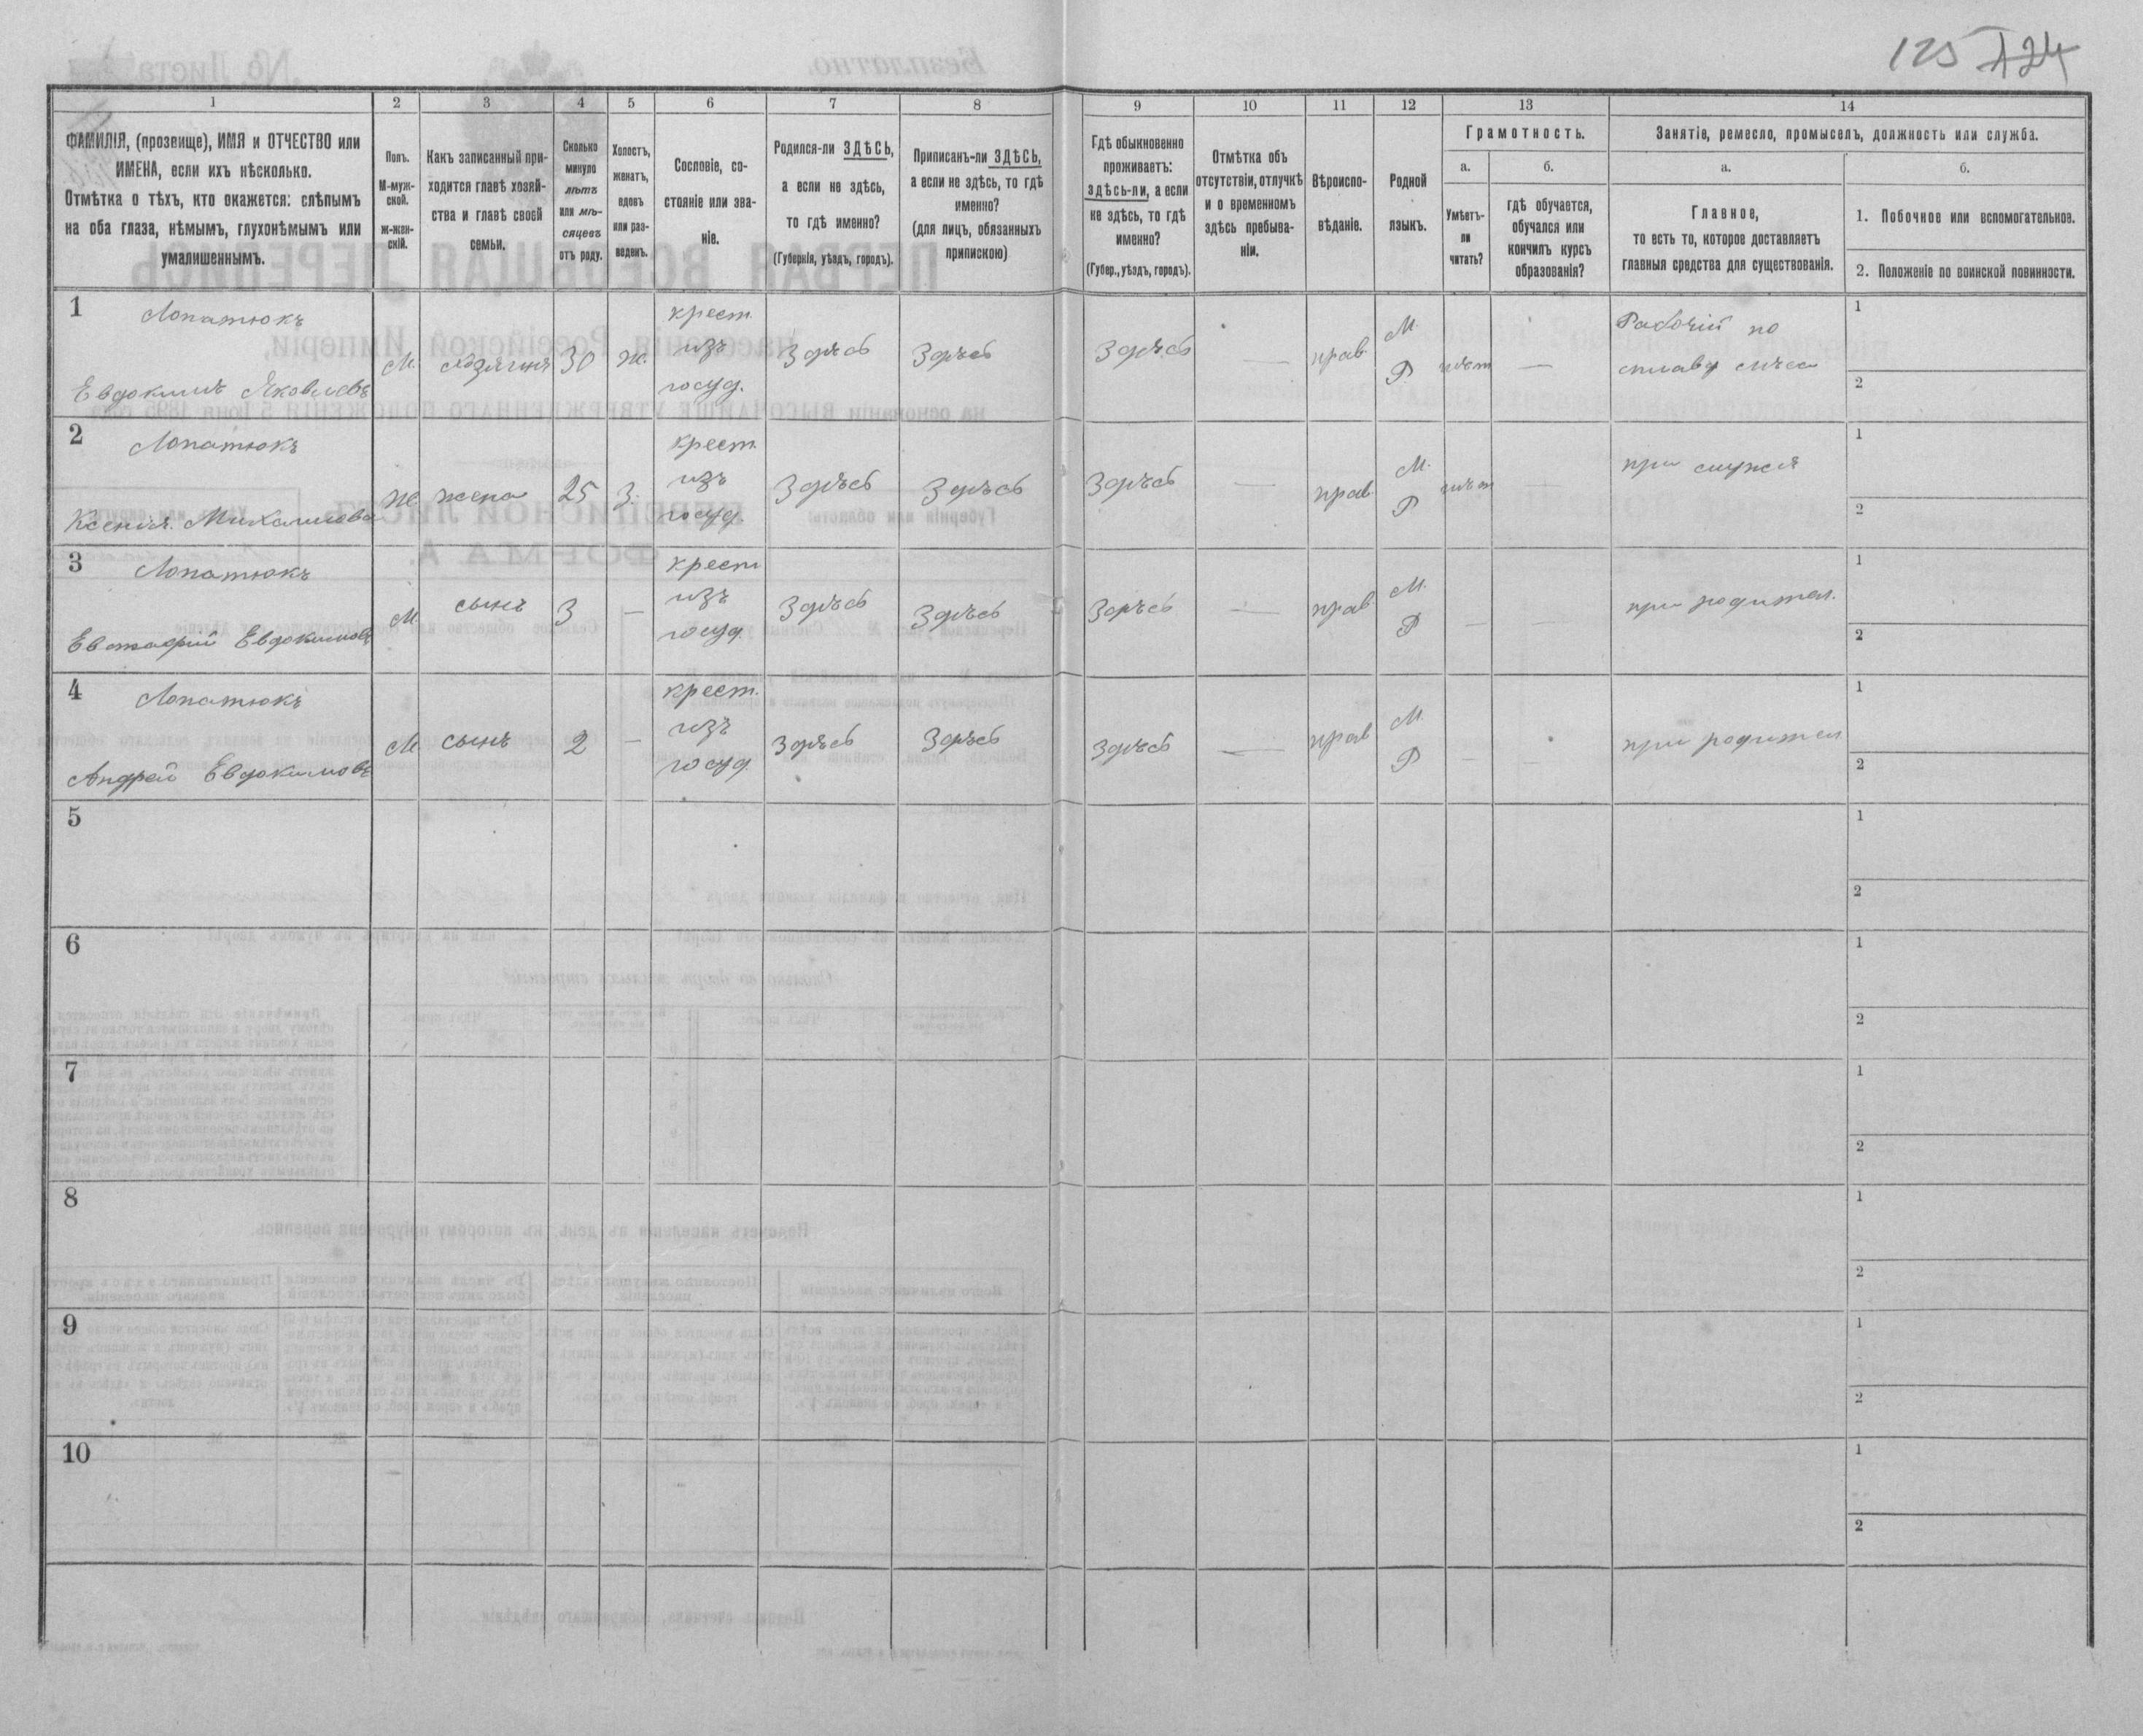 125 124
1
2
3
4
5
6
7
8
9
10
11
12
13
14
ФАМИЛІЯ, (прозвище), ИМЯ и ОТЧЕСТВО или
ИМЕНА, если ихъ нѣсколько.
Отмѣтка о тѣхъ, кто окажется: слѣпымъ
на оба глаза, нѣмымъ, глухонѣмымъ или
умалишеннымъ.
Полъ.
М-муж-
ской.
ж-жен-
скій.
Какъ записанный при-
ходится главѣ хозяй-
ства и главѣ своей
семьи.
Сколько
минуло
лѣтъ
или мѣ-
сяцевъ
отъ роду.
Холостъ,
женатъ,
вдовъ
или раз-
веденъ.
Сословіе, со-
стояніе или зва-
ніе.
Родился-ли ЗДѢСЬ,
а если не здѣсь,
то гдѣ именно?
(Губернія, уѣздъ, городъ).
Приписанъ-ли ЗДѢСЬ,
а если не здѣсь, то гдѣ
именно?
(для лицъ, обязанныхъ
припискою)
Гдѣ обыкновенно
проживаетъ:
здѣсь-ли, а если
не здѣсь, то гдѣ
именно?
(Губер., уѣздъ, городъ).
Отмѣтка объ
отсутствіи, отлучкѣ
и о временномъ
здѣсь пребыва-
ніи.
Вѣроиспо-
вѣданіе.
Родной
языкъ.
Грамотность.
а.
Умѣетъ-
ли
читать?
б.
гдѣ обучается,
обучался или
кончилъ курсъ
образованія?
Занятіе, ремесло, промыселъ, должность или служба.
а.
Главное,
то есть то, которое доставляетъ
главныя средства для существованія.
б.
1. Побочное или вспомогательное.
2. Положеніе по воинской повинности.
1
Лопатюкъ
Евдокимъ Яковлевъ
М.
хозяинъ
30
ж.
крест.
изъ
госуд.
Здѣсь
Здѣсь
Здѣсь
—
прав.
М.
Р
нѣтъ
—
Рабочій по
сплаву лѣса
1
2
2
Лопатюкъ
Ксенія Михаилова
Ж
жена
25
З.
крест.
изъ
госуд.
Здѣсь
Здѣсь
Здѣсь
—
прав.
М.
Р
нѣт
—
при мужѣ
1
2
3
Лопатюкъ
Евстафій Евдокимовъ
М.
сынъ
3
—
крест
изъ
госуд.
Здѣсь
Здѣсь
Здѣсь
—
прав.
М.
Р
—
—
при родител.
1
2
4
Лопатюкъ
Андрей Евдокимовъ
М
сынъ
2
—
крест.
изъ
госуд
Здѣсь
Здѣсь
Здѣсь
—
прав
М.
Р
—
—
при родител
1
2
5
1
2
6
1
2
7
1
2
8
1
2
9
1
2
10
1
2